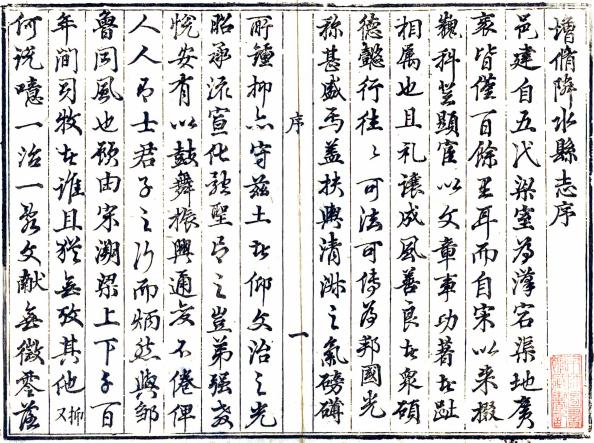 增脩隣水縣志序
邑建自五代梁室為漢宕渠地廣
袤皆僅百餘里耳而自宋以来掇
巍科登顯宦以文章事功著者趾
相属也且礼讓成風善良者衆碩
德懿行往〻可法可傳為邦國光
称甚盛焉盖扶輿清淑之氣磅礴
序
一
所鍾抑亦守兹土者仰文治之光
昭承流宣化聖之豈弟强教
悦安有以鼓舞振興邇不倦俾
人人有士君子之行而炳然與鄒
魯同風也欤由宋溯梁上下千百
年間司牧者誰且猶無攷其他抑又
何説噫一治一亂文献無徵零落